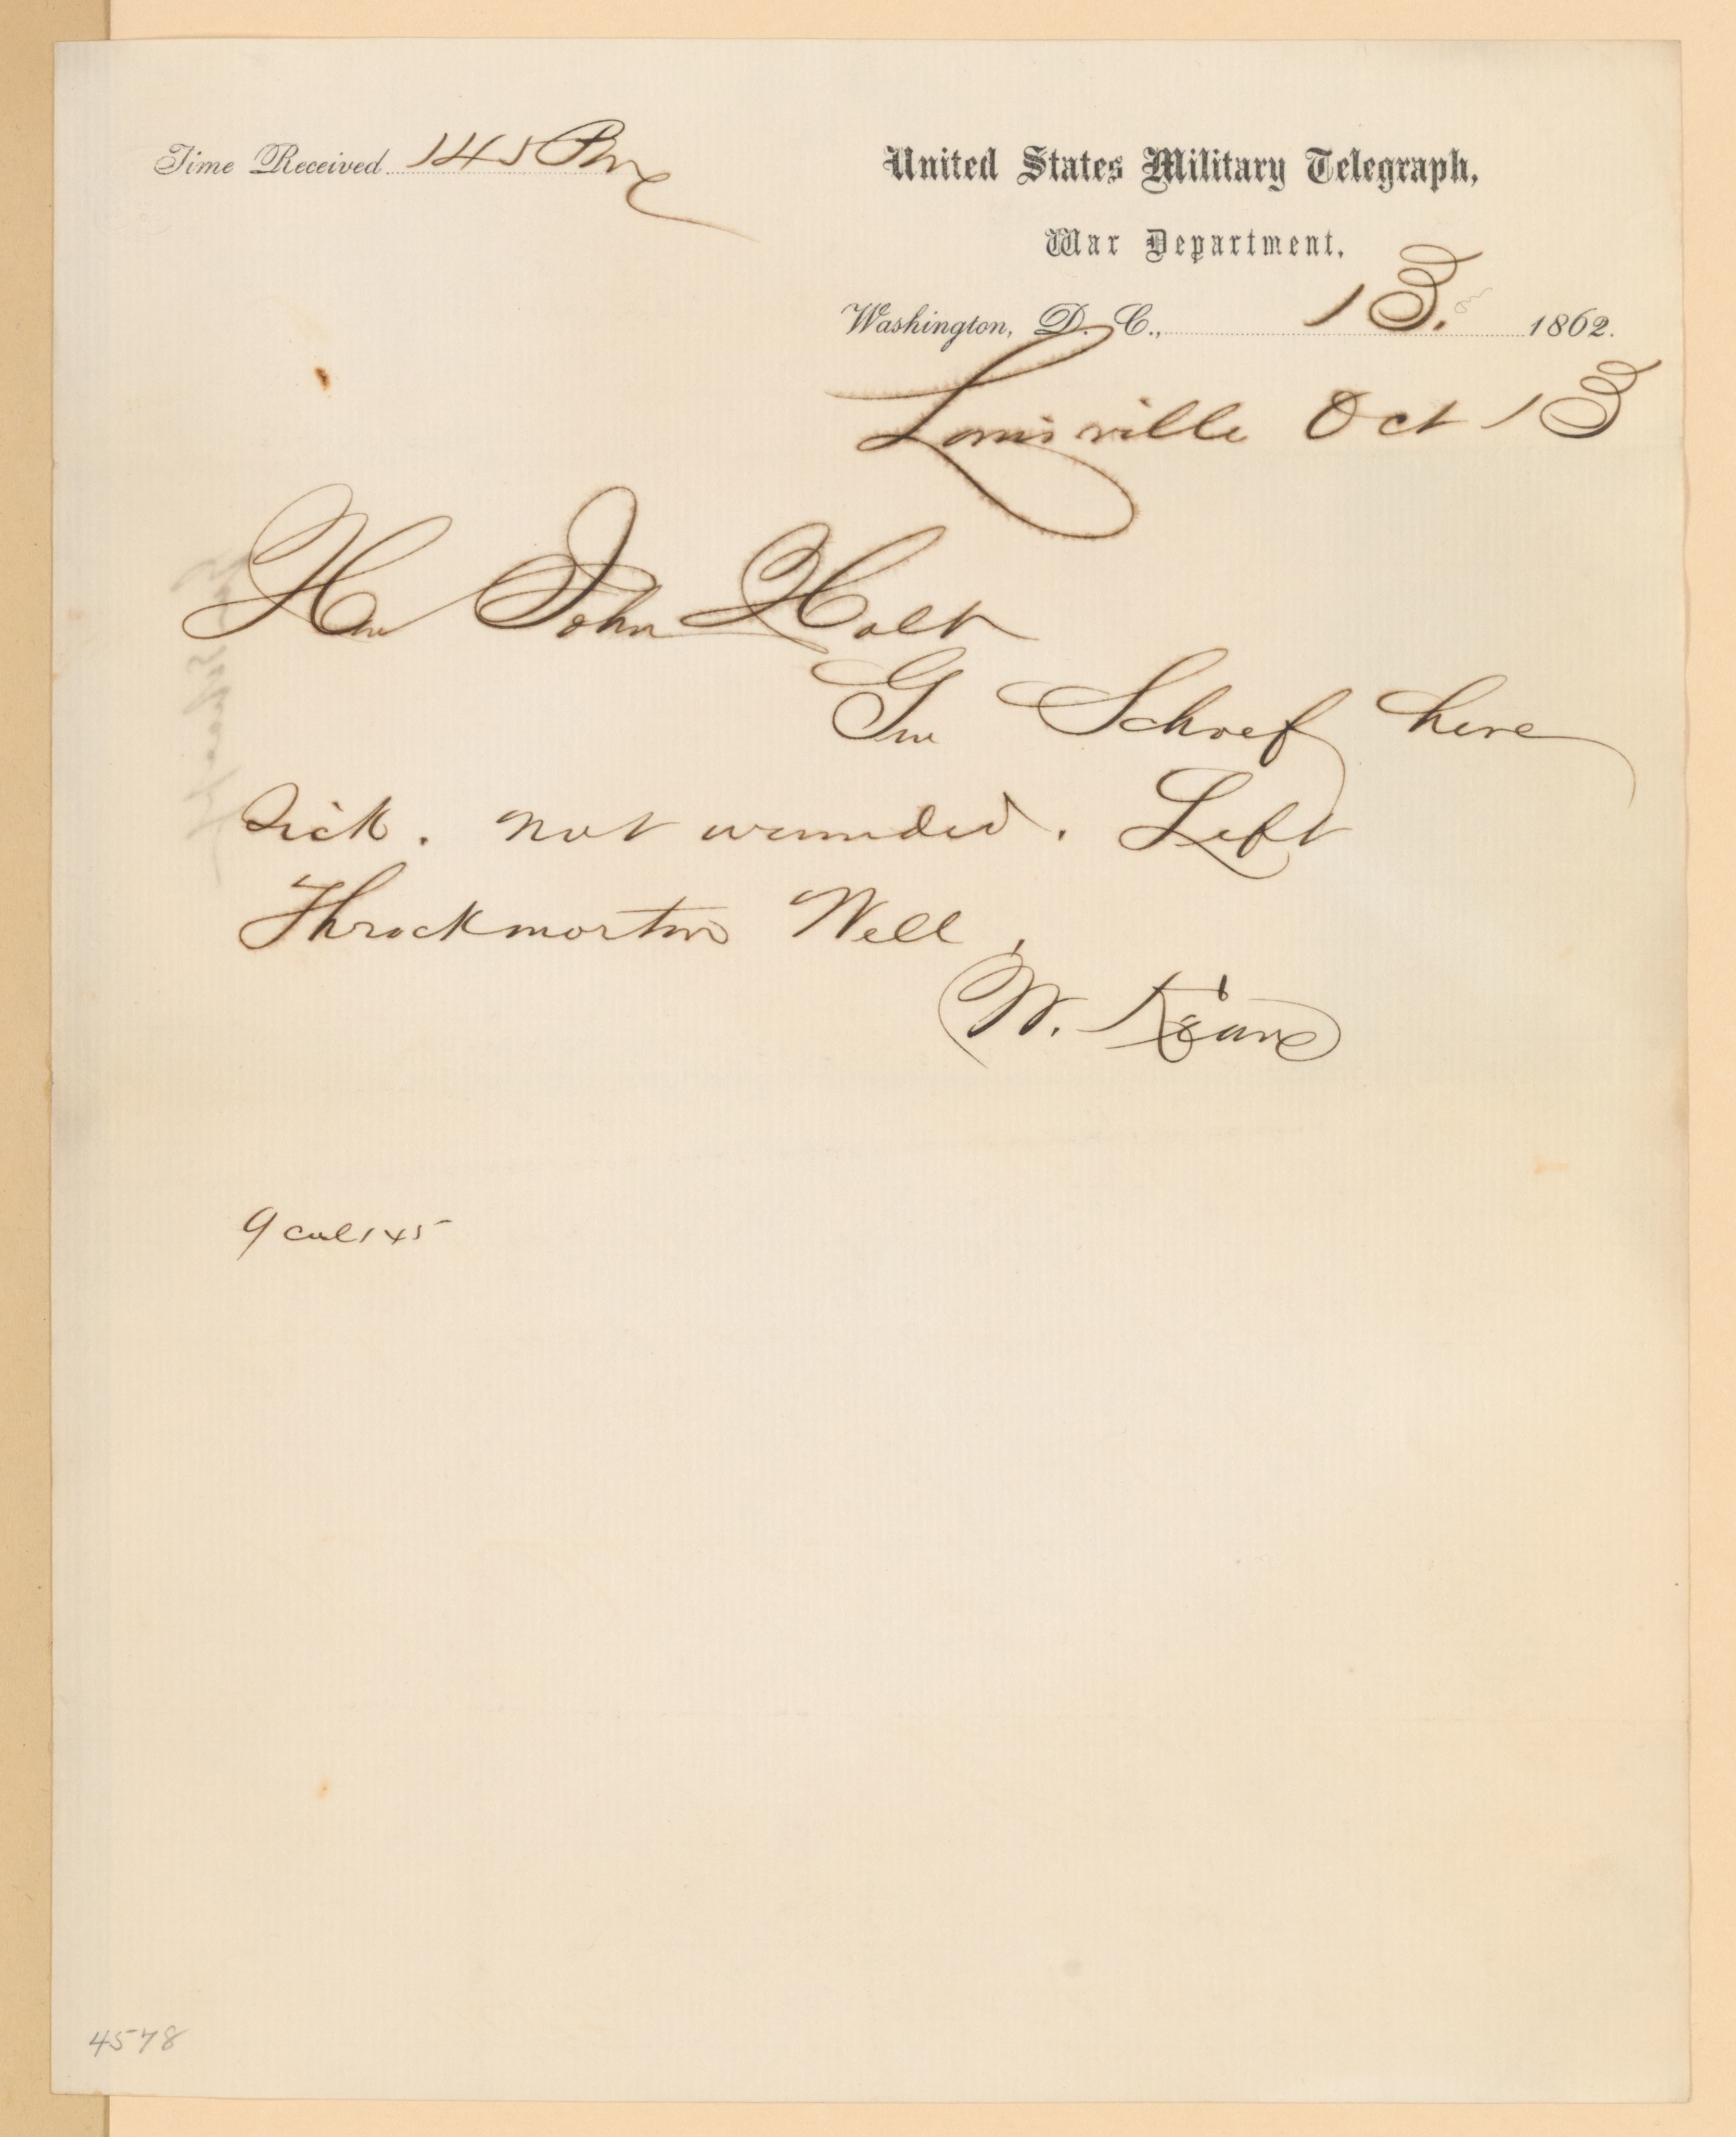 Time Received 145 Pm
United States Military Telegraph,
War Department.
Washington, D. C., 13. 1862.
Louisville Oct 13
Hon John Holt
Gen Schoef here
sick. not wounded. Left
Throckmorton Well,
W.
9 col 145
4578